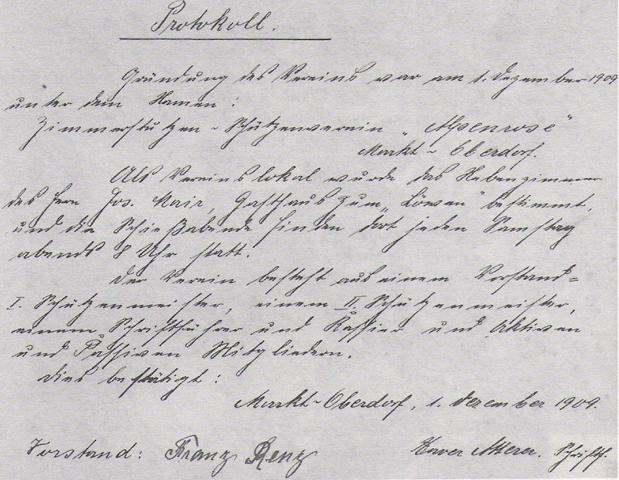 Protokoll.
Gründung des Vereins war am 1. Dezember 1909
unter dem Namen:
Zimmerstutzen-Schützenverein „Alpenrose“
Markt-Oberdorf.
Als Vereinslokal wurde das Nebenzimmer
des Herrn Jos. Mair, Gasthaus zum „Löwen“ bestimmt,
und die Schießabende finden dort jeden Samstag
abends 8 Uhr statt.
Der Verein besteht aus einem Vorstand=
I. Schützenmeister, einem II. Schützenmeister,
einem Schriftführer und Kassier und Aktiven
und Passiven Mitgliedern.
Dies bestätigt:
Markt-Oberdorf, 1. Dezember 1909.
Vorstand: Franz Renz
Xaver Schriftf.